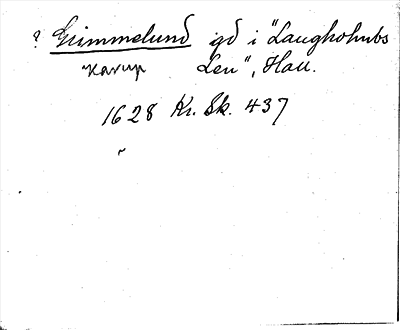 ? Grimmelund gd i "Laugholmbs
Karup Len", Hall.
1628 Kr. Sk. 437